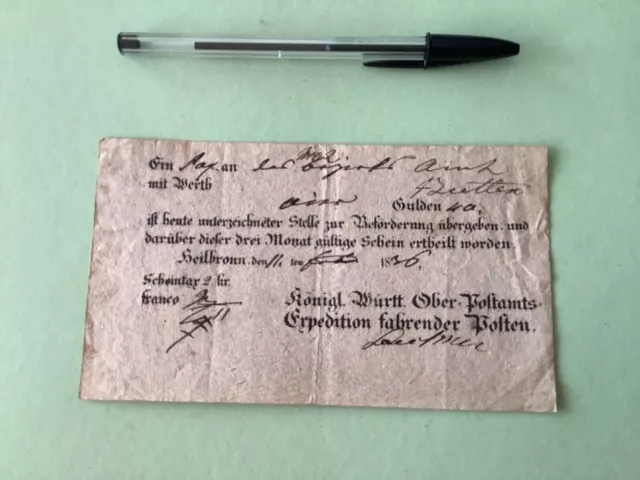 Ein Pap. an das Bezirks Amt
mit Werth
Gulden 40
ist heute unterzeichneter Stelle zur Beförderung übergeben, und
darüber dieser drei Monat gültige Schein ertheilt worden.
Heilbronn, den 11 ten 1836.
Scheintax 2 kr.
franco
Königl. Württ. Ober-Postamts-
Expedition fahrender Posten.